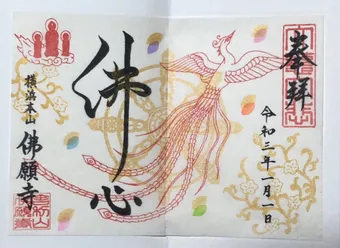 奉拝
令和三年一月一日
佛心
横浜本山
佛願寺